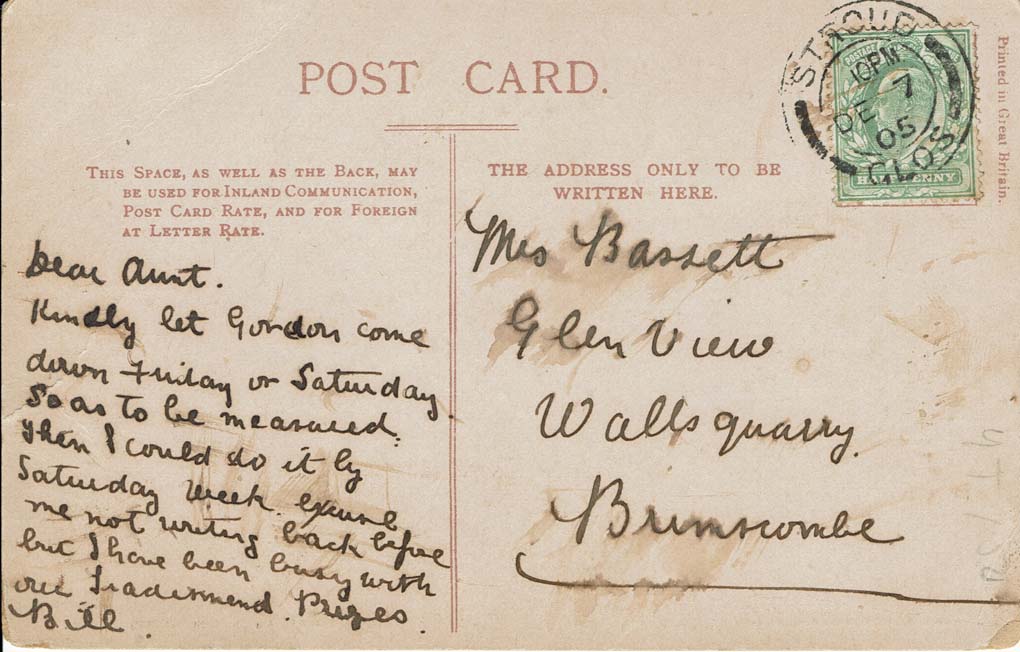 POST CARD.
THIS SPACE, AS WELL AS THE BACK, MAY
BE USED FOR INLAND COMMUNICATION,
POST CARD RATE, AND FOR FOREIGN
AT LETTER RATE.
Dear Aunt.
Kindly let Gordon come
down Friday or Saturday
So as to be measured.
Then I could do it by
Saturday Week. excuse
me not writing back before
but I have been busy with
our Prizes.
Bill.
THE ADDRESS ONLY TO BE
WRITTEN HERE.
Mrs Bassett
Glen View
Wallsquarry.
Brimscombe
STROUD
10PM
DE 7
05
GLOS
POSTAGE
HALFPENNY
Printed in Great Britain.